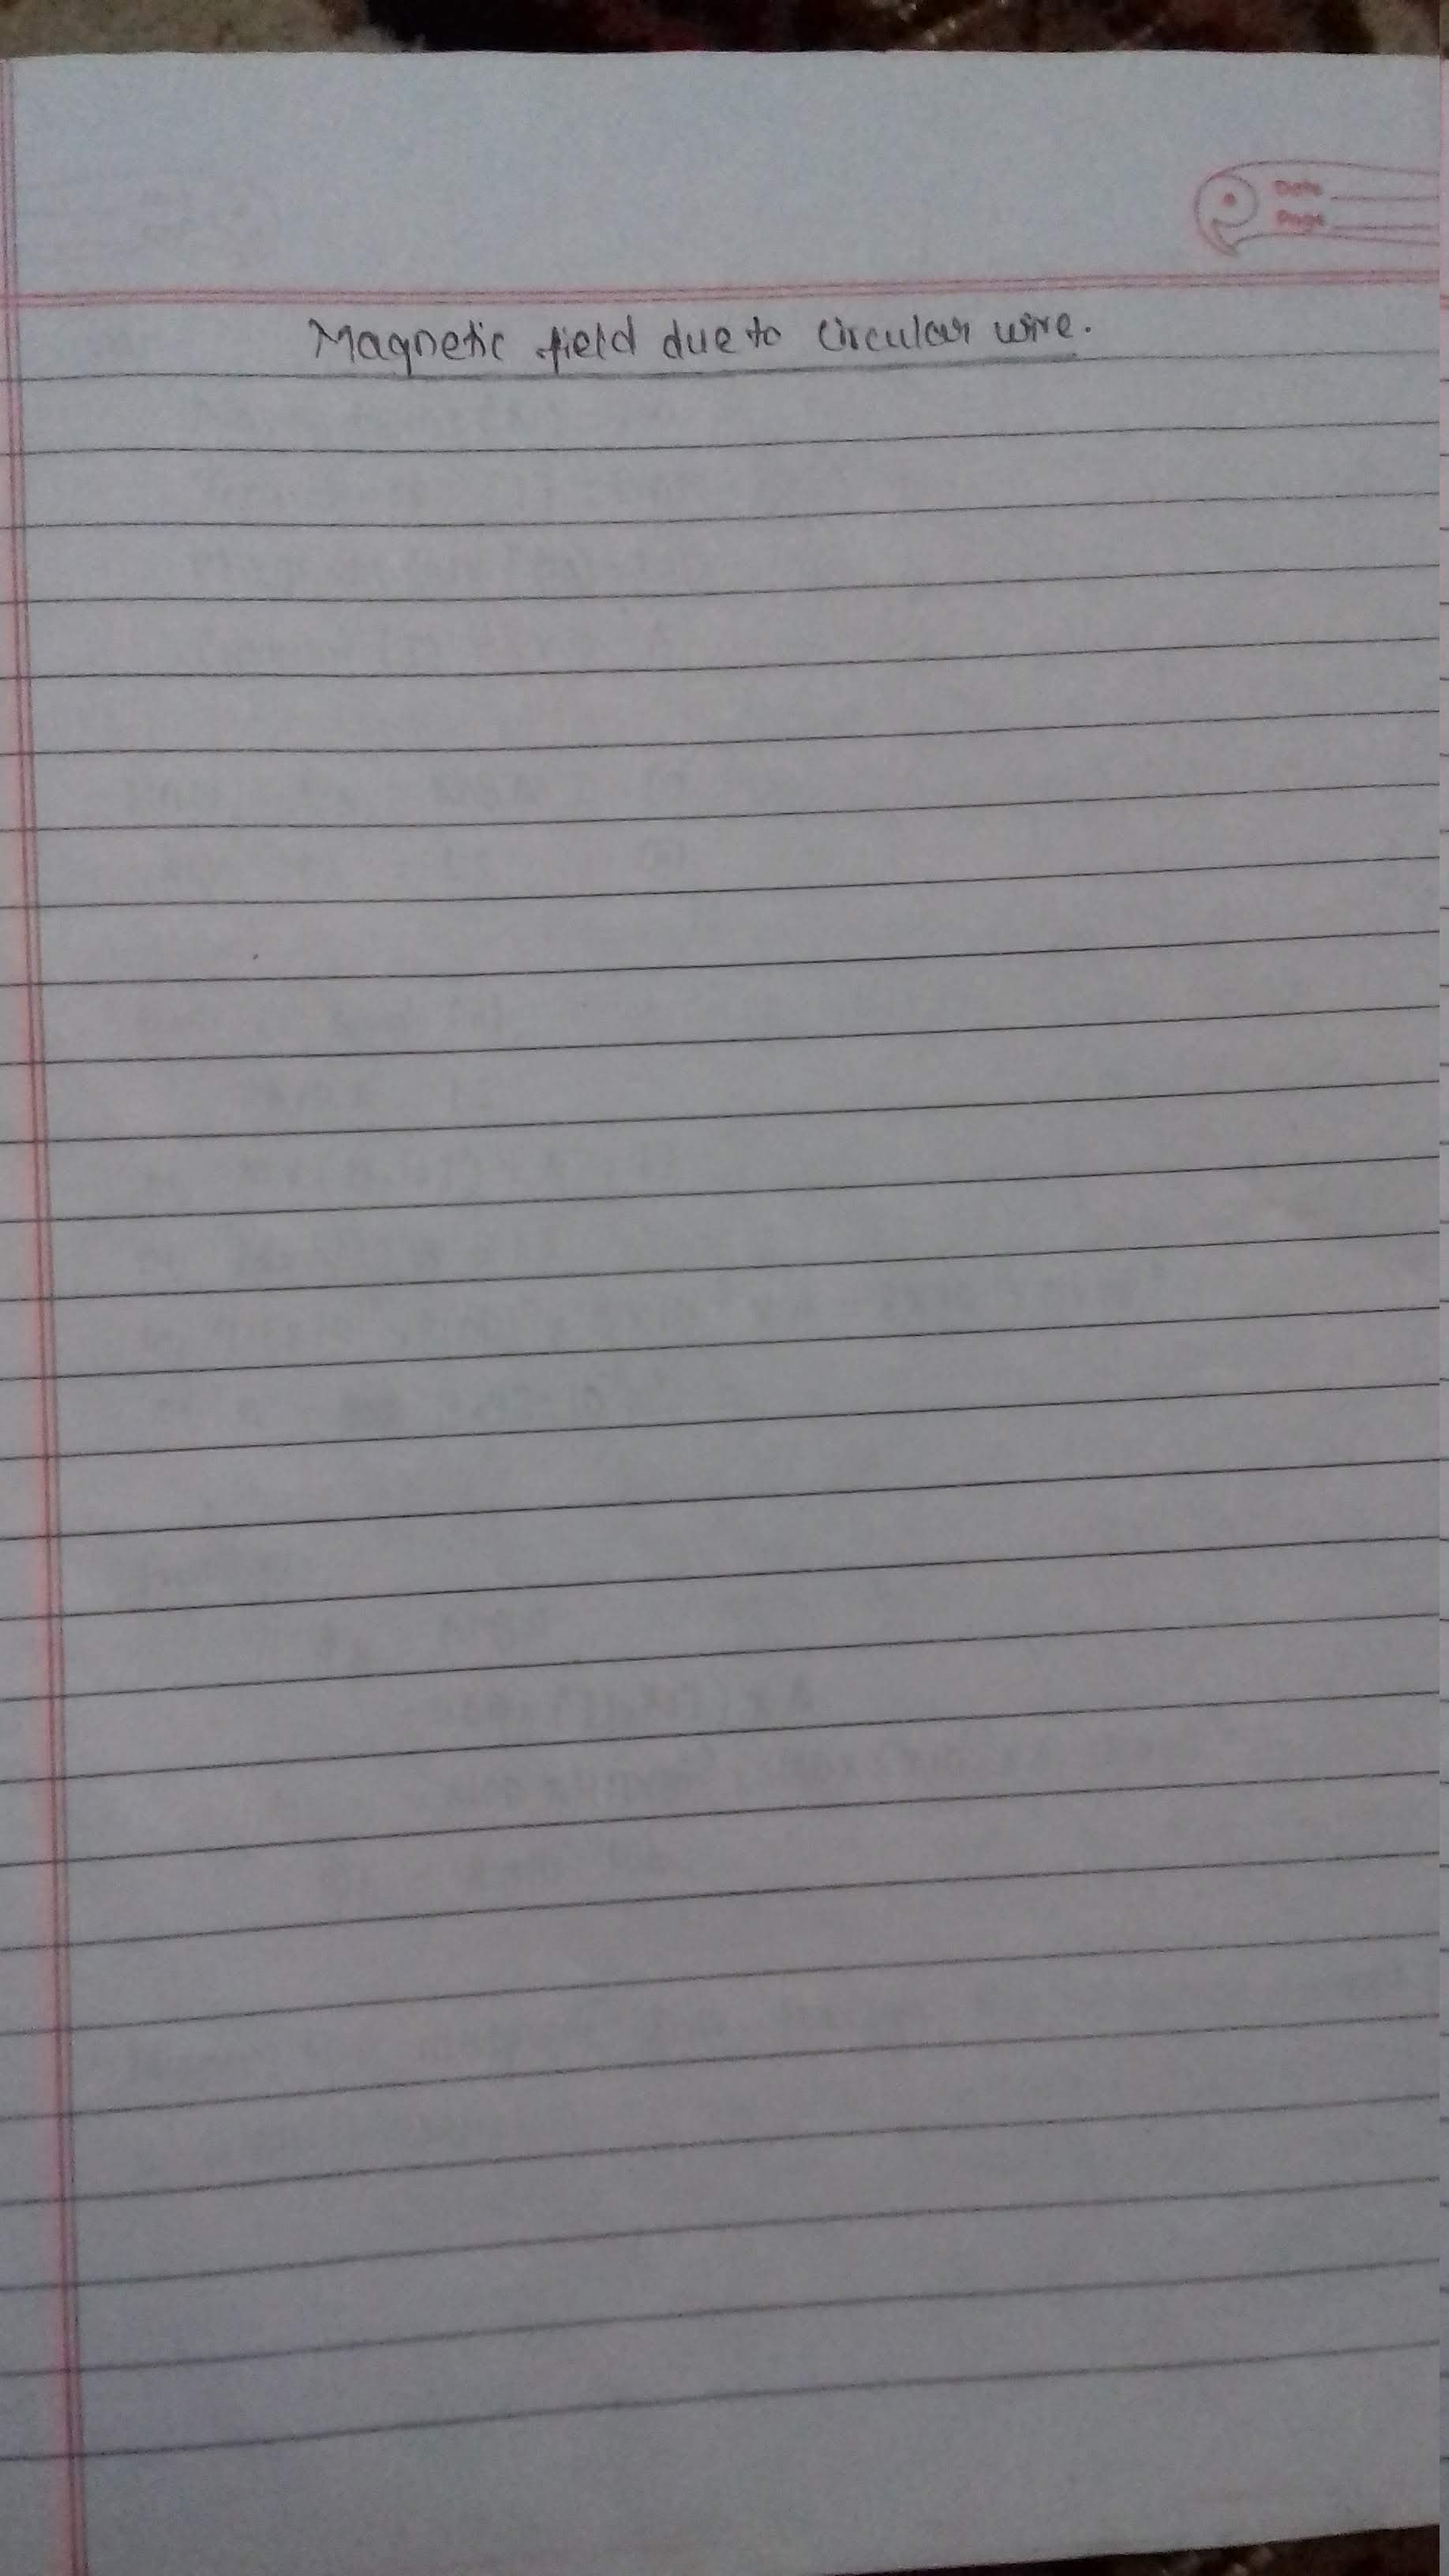 Date
Page
Magnetic field due to circular wire.